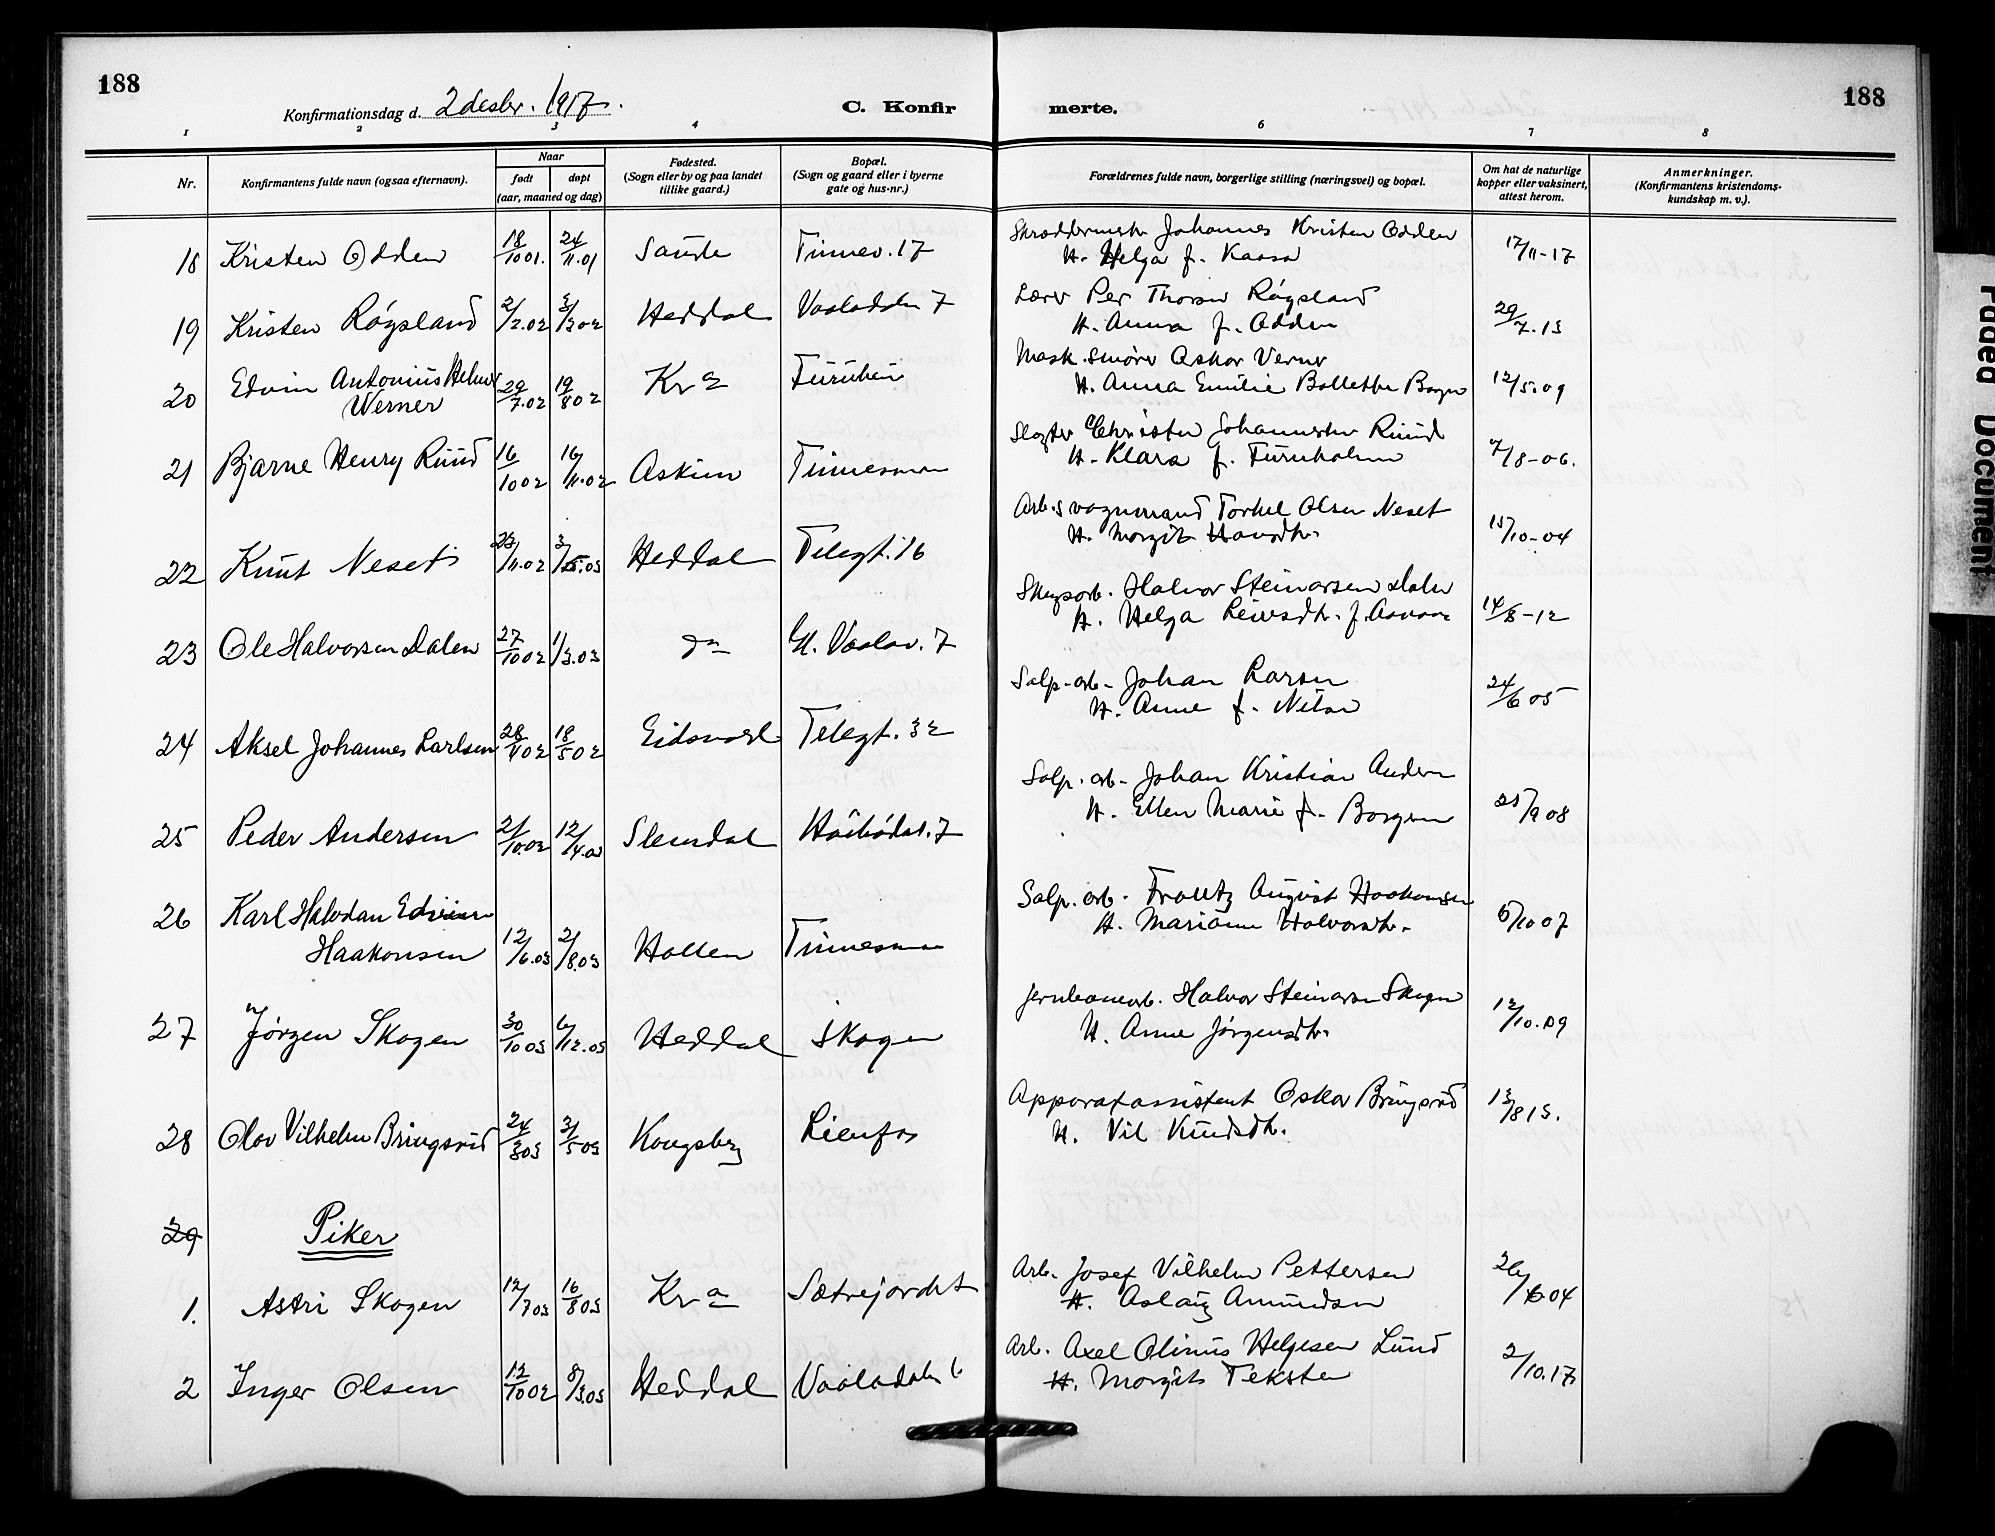 188
Konfirmationsdag d. 2 desbr. 1917.
C. Konfir
merte.
188
1
2
3
4
6
7
8
Nr.
Konfirmantens fulde navn (ogsaa efternavn).
Naar
født
døpt
(aar, maaned og dag)
Fødested.
(Sogn eller by og paa landet
tillike gaard.)
Bopæl.
(Sogn og gaard eller i byerne
gate og hus-nr.)
Forældrenes fulde navn, borgerlige stilling (næringsvei) og bopæl.
Om hat de naturlige
kopper eller vaksinert,
attest herom.
Anmerkninger.
(Konfirmantens kristendoms-
kundskap m. v.).
18 Kristen Odden 18/10 01. 24/11.01 Saude Tinnev. 17 Skræddermstr Johannes Kristen Odden 17/11-17
H. Helga f. Kaasa
19 Kristen Røysland 2/2.02 3/3 02 Heddal Vaaladalen 7 Lærer Per Thorsen Røysland 29/7.13
H. Anna f. Odden
20 Edvin Antonius Helmer 29/7.02 19/8 02 Kr a Furuheim Mask.smører Oskar Verner 12/5.09
Werner H. Anna Emilie Bollette
21 Bjarne Henry Ruud 16/10 02 16/11.02 Askim Tinnesmoen Slagter Christen Johannesen Ruud 7/8-06.
H. Klara f. Furuholmen
22 Knut Neset 23/11.02 3/5.03 Heddal Telegt. 16 Arb.s vognmand Torkel Olsen Neset 15/10-04
H. Margit Havsdtr.
23 Ole Halvorsen Dalen 27/10 02 1/3.03 do Gl. Vaalav. 7 Skogsarb. Halvor Steinarsen Dalen 14/8-12
H. Helga Leivsdtr. f.
24 Aksel Johannes Karlsen 28/4 02 18/5 02 Eidsvold Telegt. 32 Salp.-arb. Johan Larsen 24/6 05
H. Anne f. Nilsen
25 Peder Andersen 2/10.02 12/4.03 Slemdal 7 Salp. arb. Johan Kristian Andersen 25/9 08
H. Ellen Marie f. Borgen
26 Karl Halvdan Edvin
Haakonsen 12/6.03 2/8.03 Hollen Tinnesmoen Salp. arb. Frantz August Haakonsen 6/10 07
H. Mariane Halvorsdtr.
27 Jørgen Skogen 30/10 03 6/12.03 Heddal Skogen Jernbanearb. Halvor Steinarsen Skogen 12/10.09
H. Anne Jørgensdtr.
28 Olav Vilhelm Bringsrud 24/3 03 3/5 03 Kongsberg Lienfos Apparatassistent Oskar Bringsrud 13/8 13.
H. Vil Knudsdtr.
29 Piker
1. Astri Skogen 12/7 03 16/8 03 Kr a Sætrejordet Arb. Josef Vilhelm Pettersen 26/6 04
H. Aslaug Amundsen
2 Inger Olsen 12/10 02 8/3.03 Heddal Vaaladalen 6 Arb. Axel Olinus Helgesen Lund 2/10.17
H. Margit Tekste
Faded Document